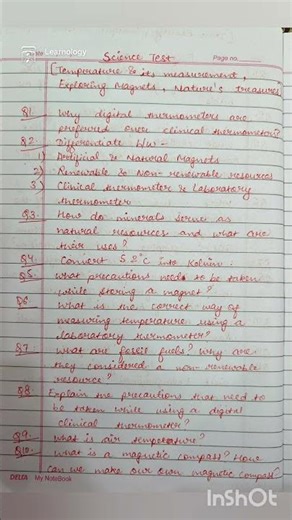 Learnology
Science Test
Page no.
[Temperature & its measurement,
Exploring Magnets, Nature's treasures]
Q1. Why digital thermometers are
preferred over clinical thermometers?
Q2. Differentiate b/w -
1) Artificial & Natural Magnets
2) Renewable & Non-renewable resources
3) Clinical thermometer & Laboratory
thermometer
Q3. How do minerals serve as
natural resources and what are
their uses?
Q4. Convert 52°C into Kelvin.
Q5. What precautions needs to be taken
while storing a magnet?
Q6. What is the correct way of
measuring temperature using a
laboratory thermometer?
Q7. What are fossil fuels? Why are
they considered a non-renewable
resource?
Q8. Explain the precautions that need to
be taken while using a digital
clinical thermometer?
Q9. What is air temperature?
Q10. What is a magnetic compass? How
can we make our own magnetic compass?
DELTA My NoteBook
InShOt